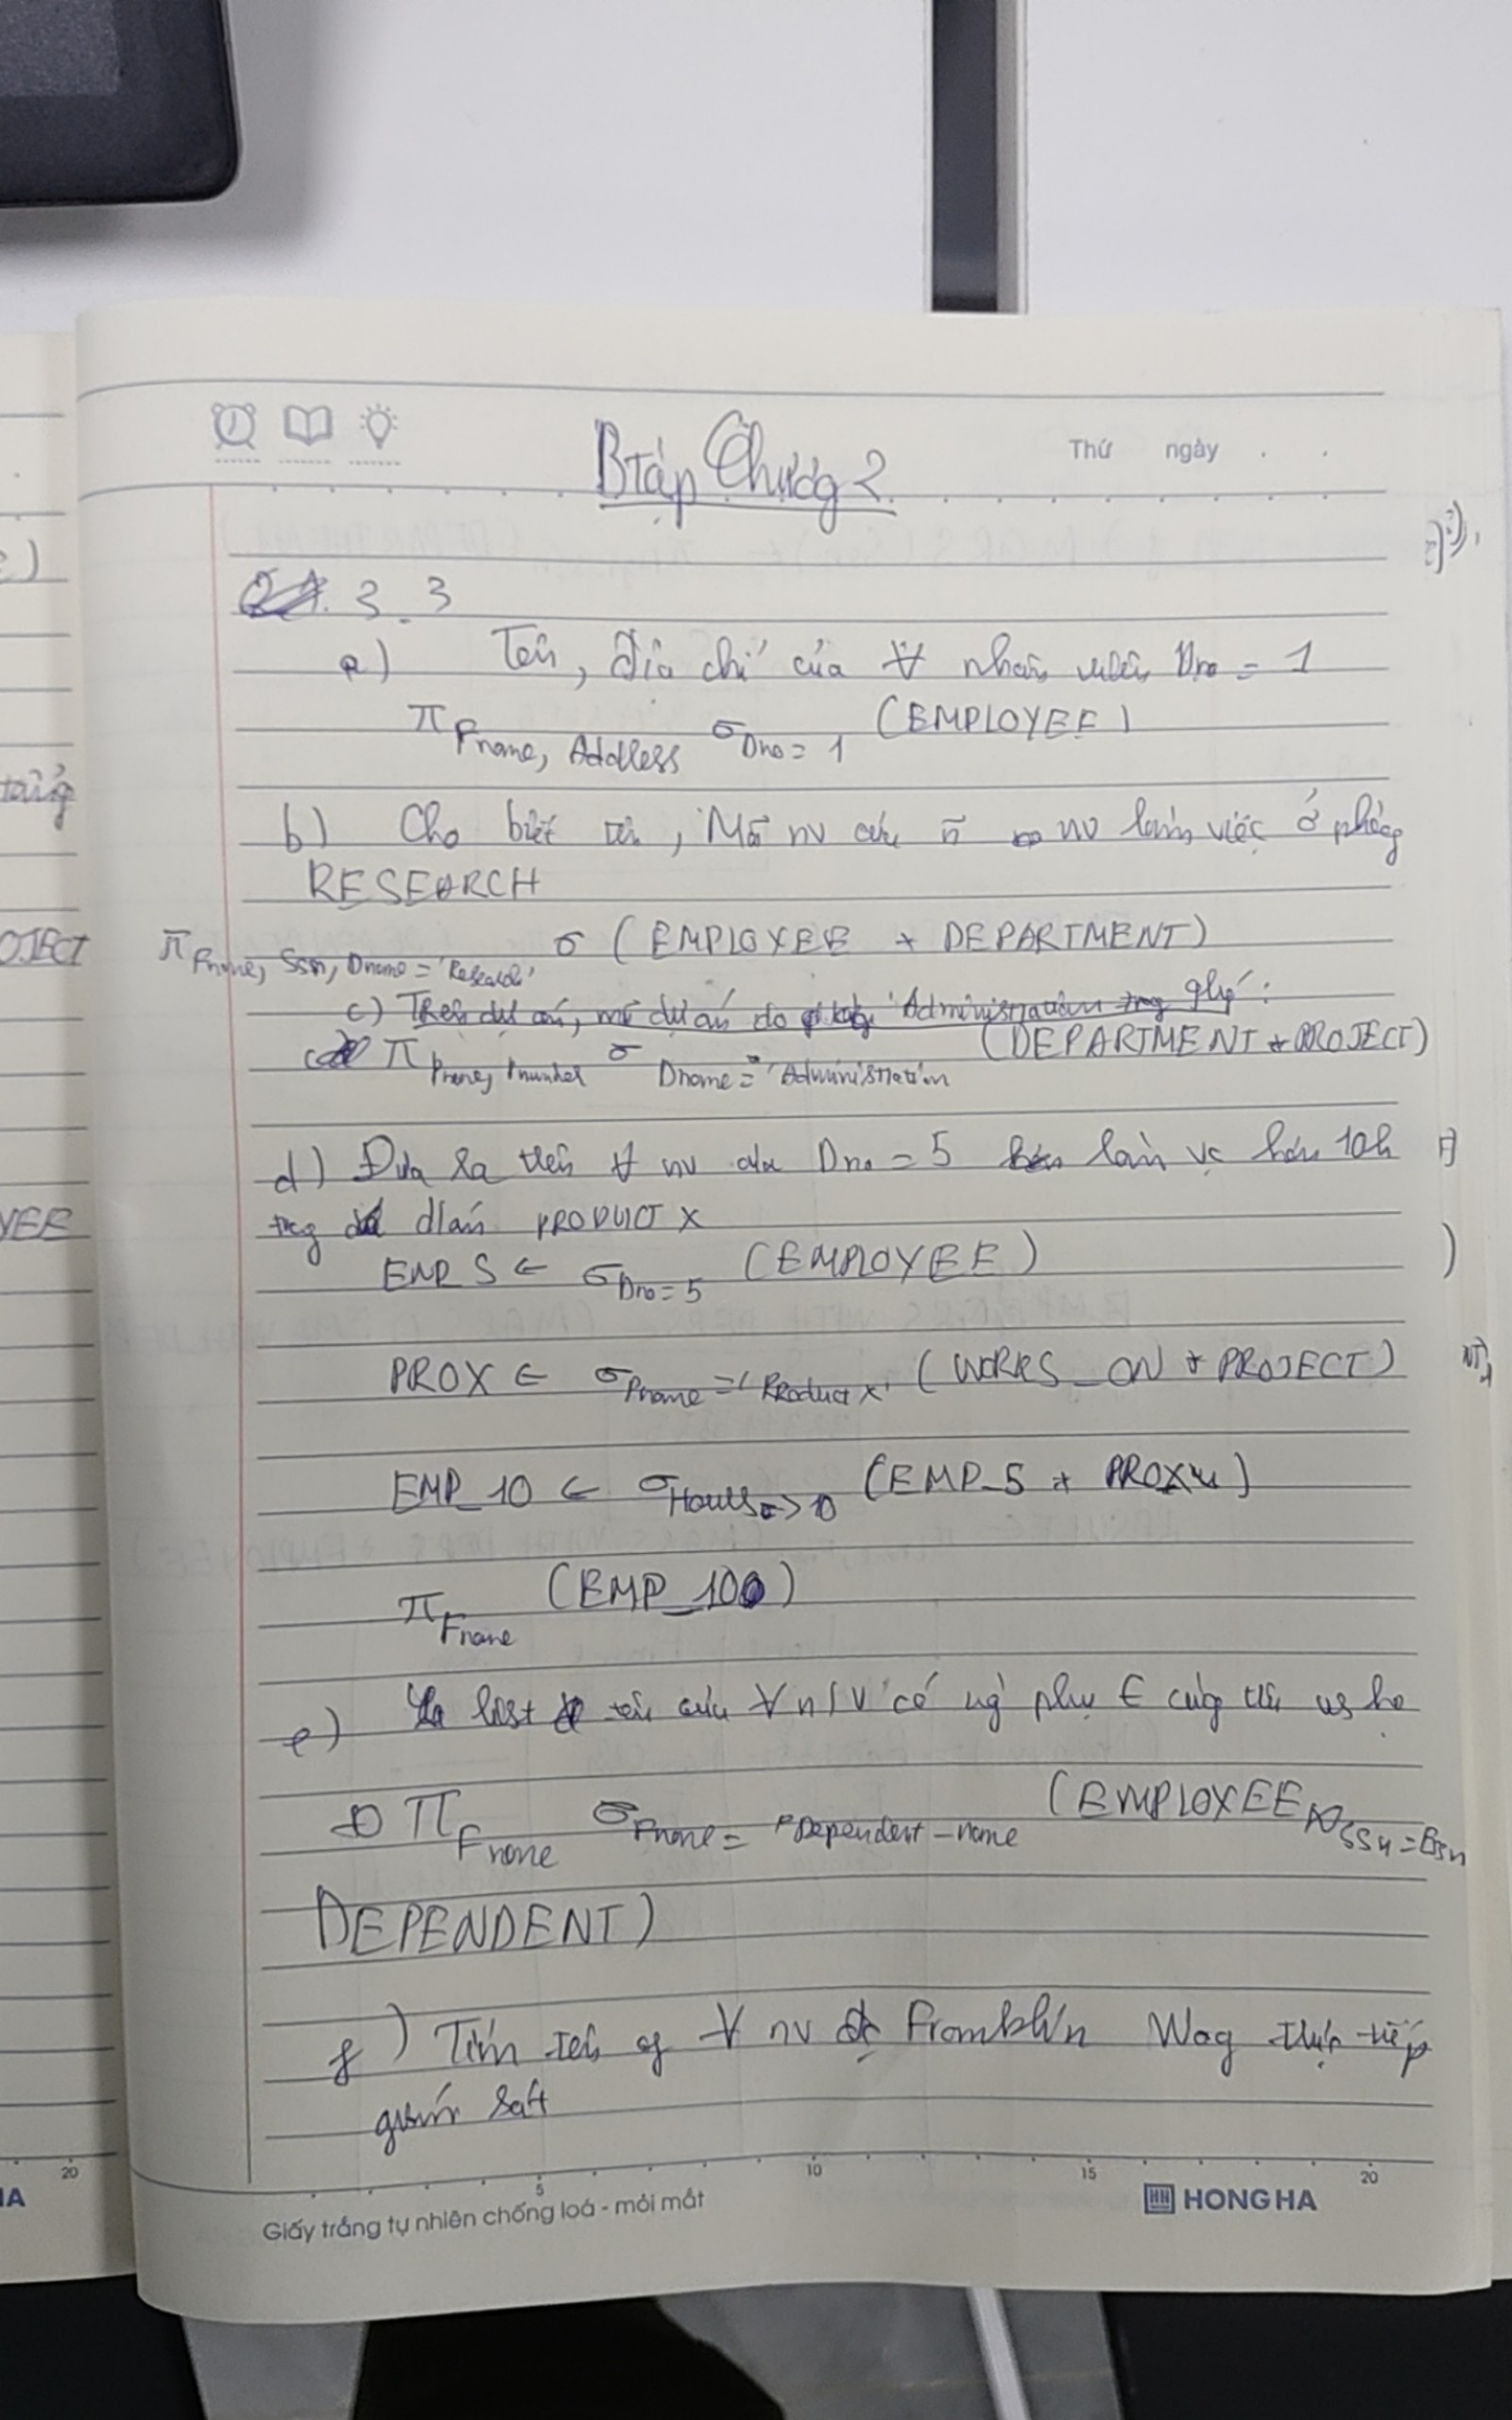 Btập Chươg 2
Thứ ngày
3.3
a) Tên, địa chỉ của ∀ nhân viên Dno = 1
π Fname, Address σ Dno = 1 (EMPLOYEE)
b) Cho biết tên, Mã nv của nv làm việc ở phòng
RESEARCH
π Fname, Ssn, Dname = 'Research' σ (EMPLOYEE * DEPARTMENT)
c) Tên dự án, mã dự án do 'Administration qlý:
π Pname, Pnumber σ Dname = 'Administration (DEPARTMENT * PROJECT)
d) Đưa ra tên ∀ nv của Dno = 5 làm vc hơn 10h
trg dán PRODUCT X
EMP_5 ← σ Dno = 5 (EMPLOYEE)
PROX ← σ Pname = 'Product X' (WORKS_ON * PROJECT)
EMP_10 ← σ Hours > 10 (EMP_5 * PROX)
π Fname (EMP_10)
e) list tên của ∀ n/v có ng` phụ ∈ cùng tên vs họ
π Fname σ Fname = Dependent-name (EMPLOYEE ⋈ Ssn = Essn
DEPENDENT)
f) Tìm tên of ∀ nv đc Franklin Wog trực tiếp
giám sát
5 10 15 20
Giấy trắng tự nhiên chống loá - mỏi mắt
HONG HA
tạig
OJECT
YEE
20
HA